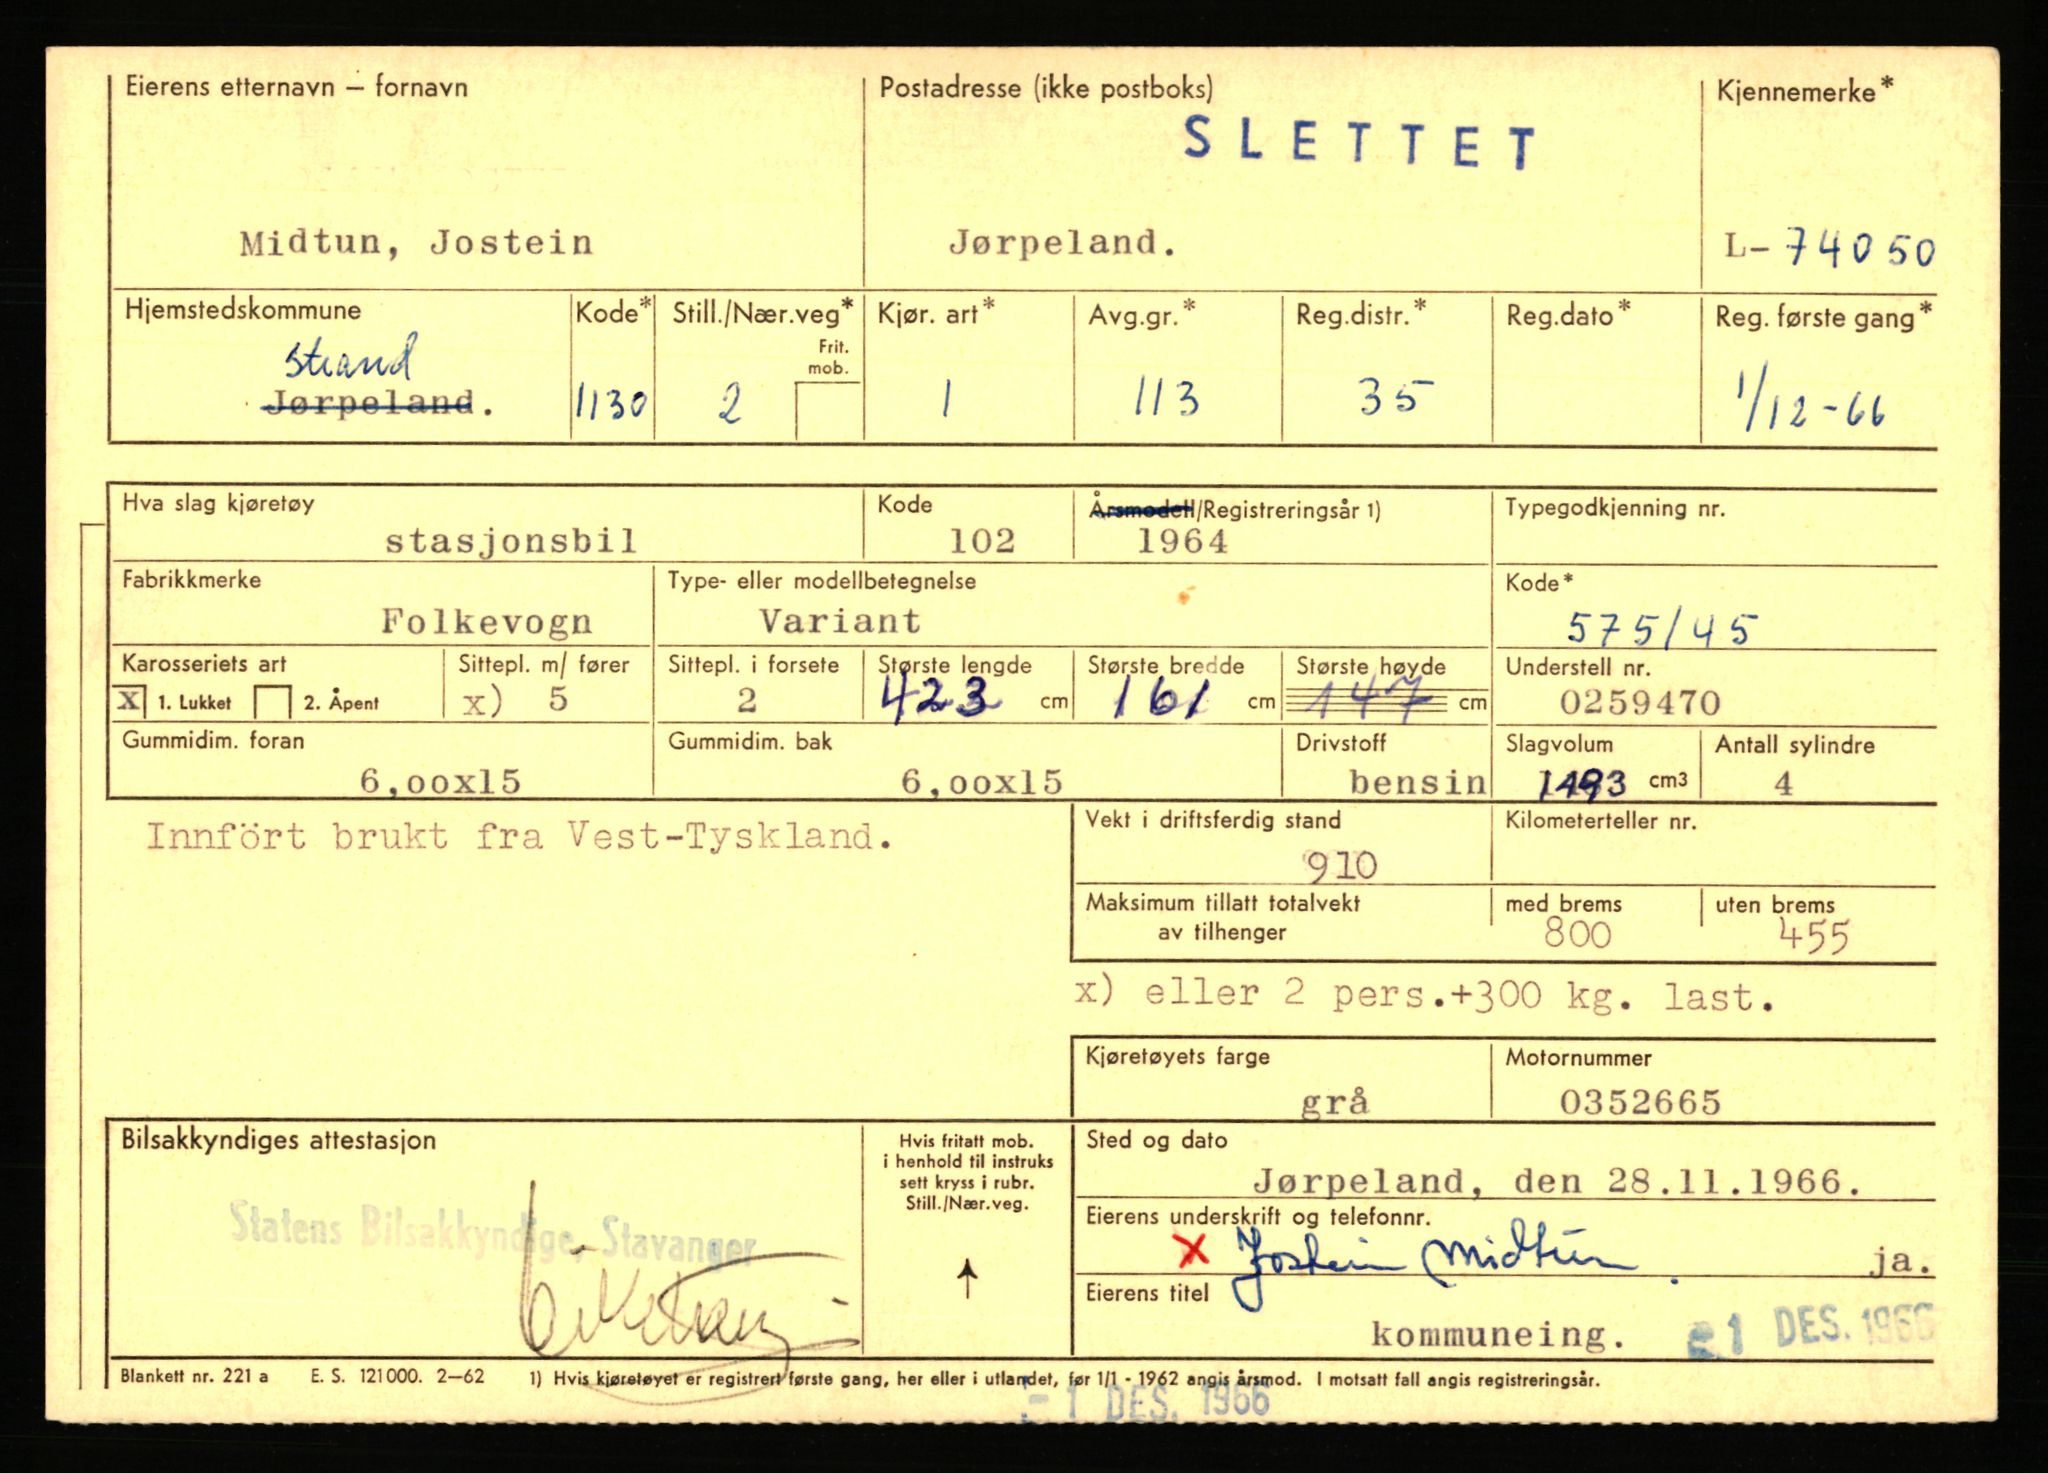 Eierens etternavn – fornavn Postadresse (ikke postboks) Kjennemerke*
SLETTET
Midtun, Jostein Jørpeland. L-74050
Hjemstedskommune Kode* Still./Nær.veg* Kjør. art* Avg.gr.* Reg.distr.* Reg.dato* Reg. første gang*
Frit.
mob.
Strand
Jørpeland. 1130 2 1 113 35 1/12-66
Hva slag kjøretøy Kode Årsmodell/Registreringsår 1) Typegodkjenning nr.
stasjonsbil 102 1964
Fabrikkmerke Type- eller modellbetegnelse Kode*
Folkevogn Variant 575/45
Karosseriets art Sittepl. m/ fører Sittepl. i forsete Største lengde Største bredde Største høyde Understell nr.
X 1. Lukket 2. Åpent x) 5 2 423 cm 161 cm 147 cm 0259470
Gummidim. foran Gummidim. bak Drivstoff Slagvolum Antall sylindre
6,00x15 6,00x15 bensin 1493 cm3 4
Innfört brukt fra Vest-Tyskland.
Vekt i driftsferdig stand Kilometerteller nr.
910
Maksimum tillatt totalvekt med brems uten brems
av tilhenger 800 455
x) eller 2 pers.+300 kg. last.
Kjøretøyets farge Motornummer
grå 0352665
Bilsakkyndiges attestasjon
Hvis fritatt mob.
i henhold til instruks
sett kryss i rubr.
Still./Nær.veg.
Statens Bilsakkyndige, Stavanger
Sted og dato
Jørpeland, den 28.11.1966.
Eierens underskrift og telefonnr.
x Jostein Midtun ja.
Eierens titel
kommuneing. 1 DES. 1966
Blankett nr. 221 a E. S. 121000. 2–62 1) Hvis kjøretøyet er registrert første gang, her eller i utlandet, før 1/1 - 1962 angis årsmod. I motsatt fall angis registreringsår.
- 1 DES. 1966